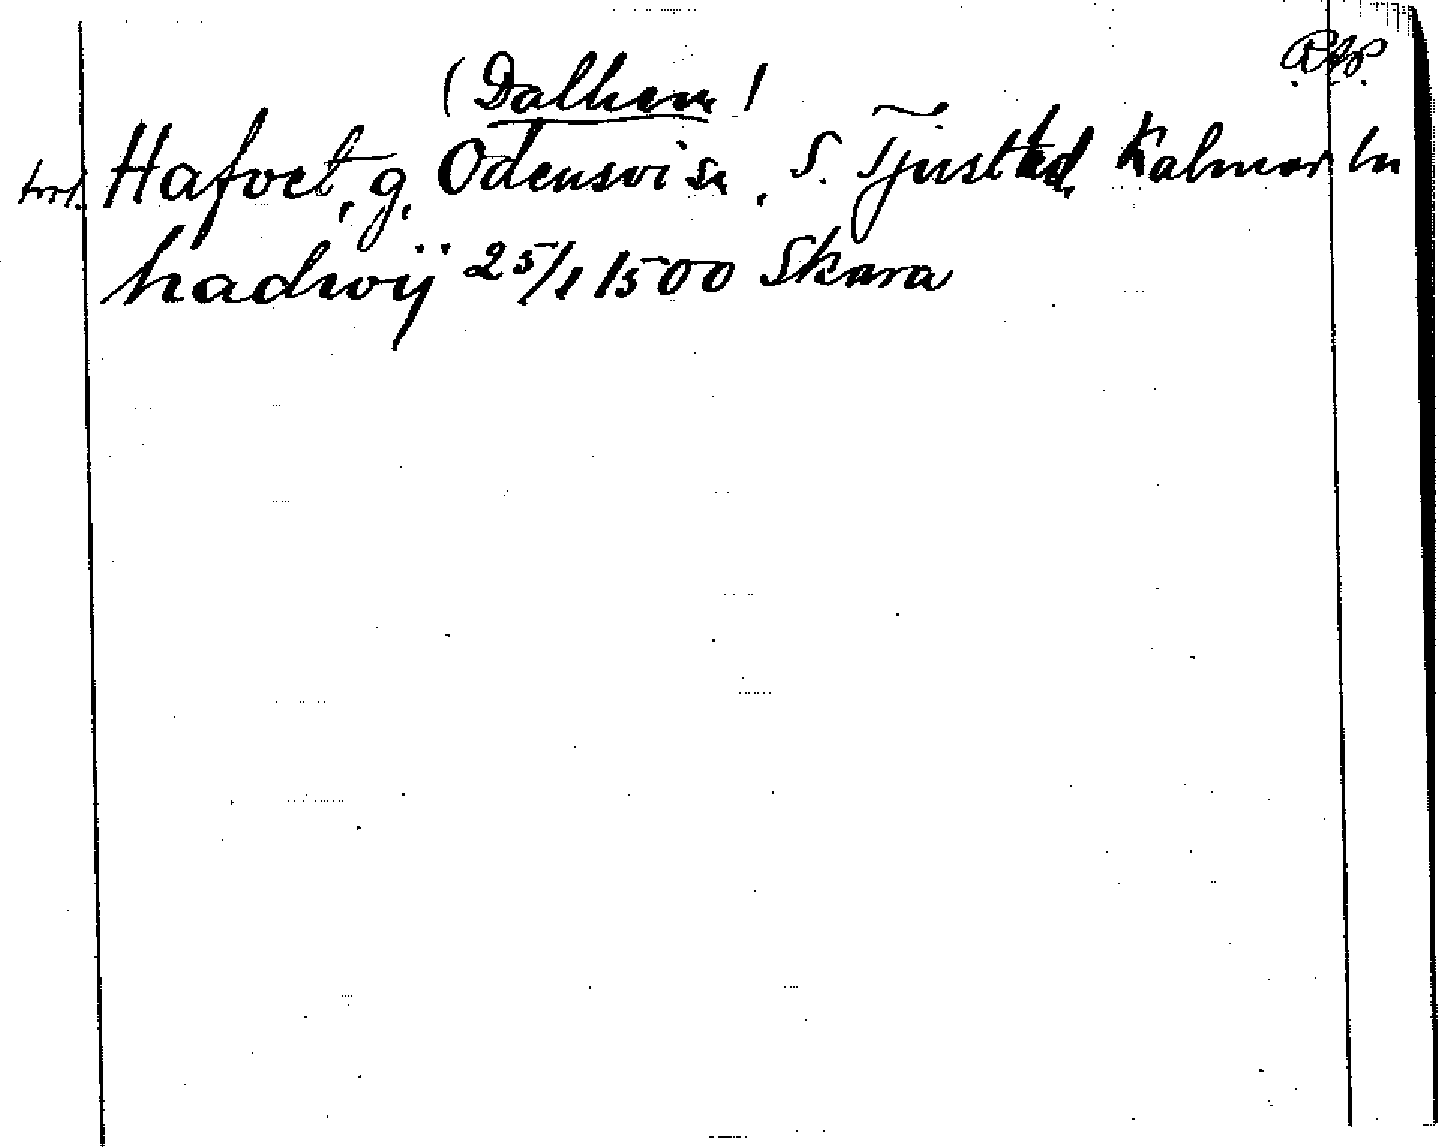 (Dalhem)
Hafvet, g, Odensvi sn, S. Tjust hd, Kalmar ln
hadwij 25/1 1500 Skara